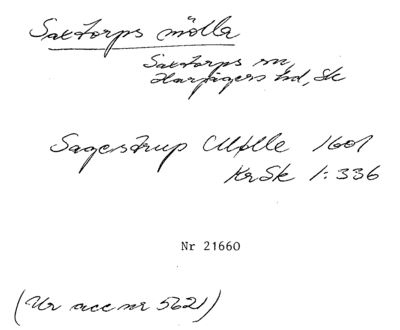 Saxtorps mölla
Saxtorps sn,
Harjagers hd, Sk
Sagerstrup Mølle 1601
KrSk 1:336
Nr 21660
(Ur acc nr 5621)